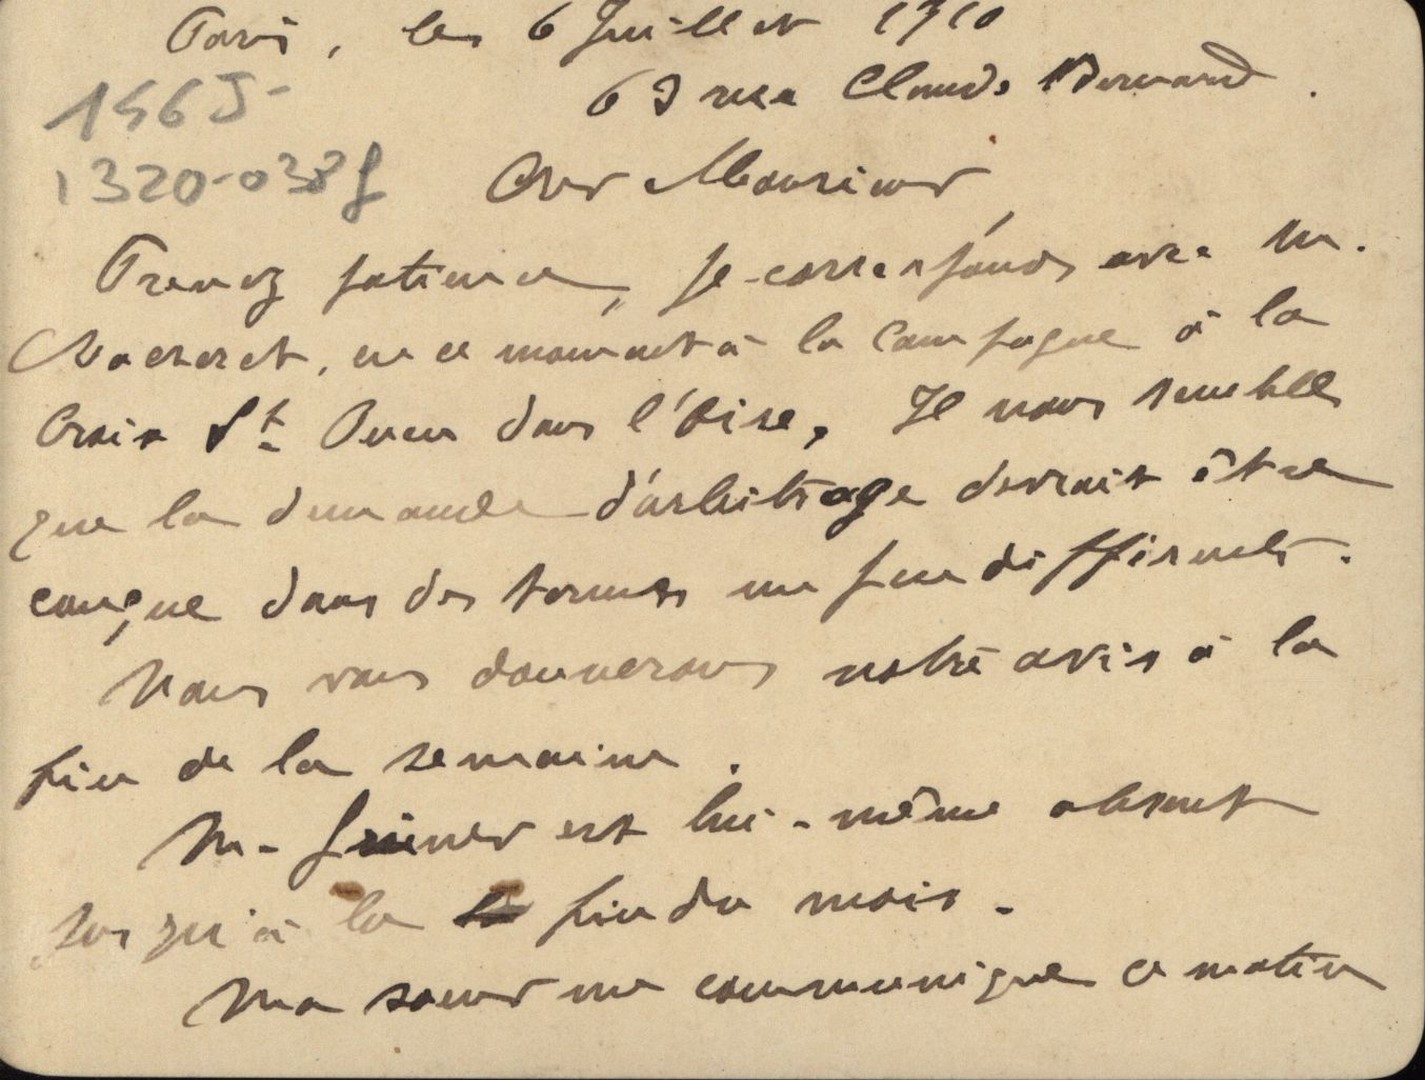 Paris, le 6 Juillet 1910
63 rue Claude Bernard.
156 J-
1320-038 f
Cher Monsieur,
Prenez patience, je corresponds avec M.
Vacheret, en ce moment à la Campagne à la
Croix St Ouen dans l'Oise. Il nous semble
que la demande d'arbitrage devrait être
conçue dans des termes un peu différents.
Nous vous donnerons notre avis à la
fin de la semaine.
M. est lui-même absent
jusqu'à la fin du mois.
Ma soeur me communique ce matin